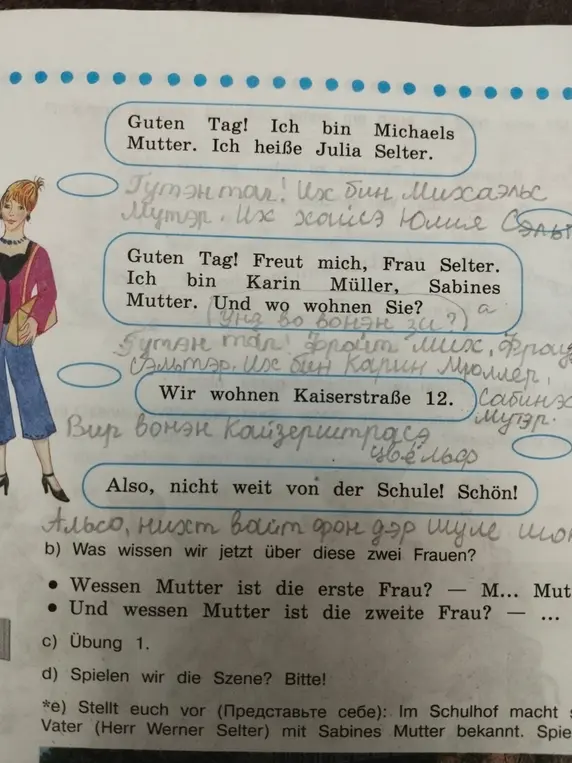 Guten Tag! Ich bin Michaels
Mutter. Ich heiße Julia Selter.
Гутэн таг! Их бин Михаэльс
Мутэр. Их хайсэ Юлия Сэльт
Guten Tag! Freut mich, Frau Selter.
Ich bin Karin Müller, Sabines
Mutter? Und wo wohnen Sie?
(Унд во вонэн зи?) а
Гутэн таг! Фройт мих, Фрау
Сэльтэр. Их бин Карин Мюллер,
Сабинэ
Мутэр.
Wir wohnen Kaiserstraße 12.
Вир вонэн Кайзерштрасэ
цвёльф
Also, nicht weit von der Schule! Schön!
Альсо, нихт вайт фон дэр шуле шон
b) Was wissen wir jetzt über diese zwei Frauen?
• Wessen Mutter ist die erste Frau? — M... Mut
• Und wessen Mutter ist die zweite Frau? — ...
c) Übung 1.
d) Spielen wir die Szene? Bitte!
*e) Stellt euch vor (Представьте себе): Im Schulhof macht
Vater (Herr Werner Selter) mit Sabines Mutter bekannt. Spie